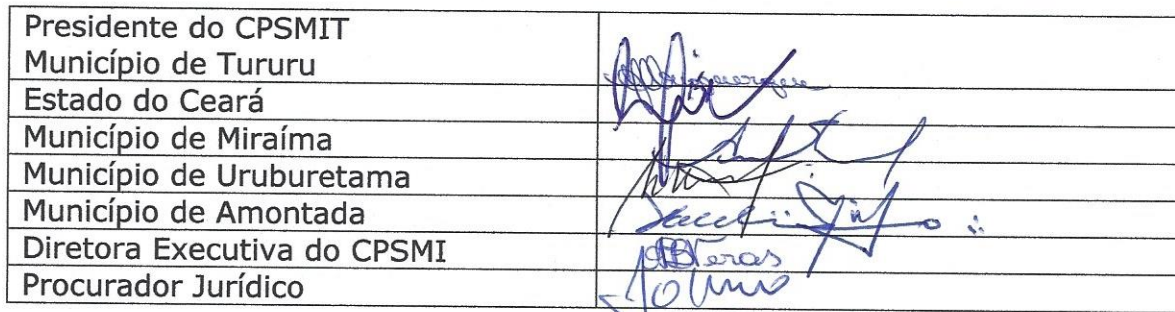 Presidente do CPSMIT
Município de Tururu
Estado do Ceará
Município de Miraíma
Município de Uruburetama
Município de Amontada
Diretora Executiva do CPSMI
Procurador Jurídico